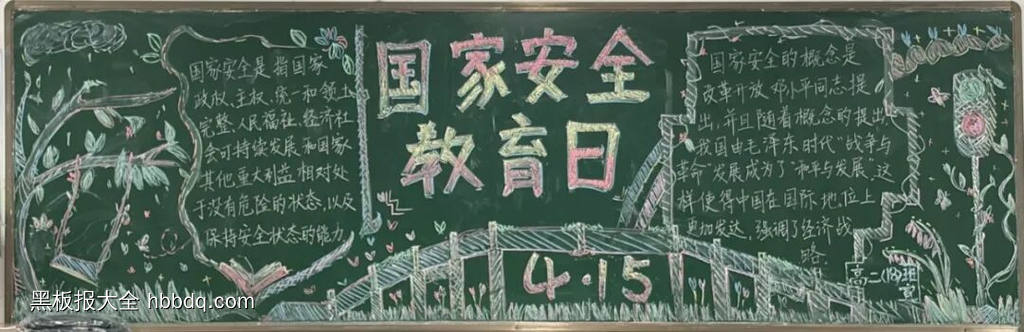 国家安全
教育日
4·15
国家安全是指国家
政权、主权、统一和领土
完整、人民福祉、经济社
会可持续发展和国家
其他重大利益相对处
于没有危险的状态,以及
保持安全状态的能力
国家安全的概念是
改革开放邓小平同志提
出,并且随着概念的提出
我国由毛泽东时代"战争与
革命"发展成为了"和平与发展",这
样使得中国在国际地位上
更加发达,强调了经济战
路
高二
班
宣
黑板报大全 hbbdq.com